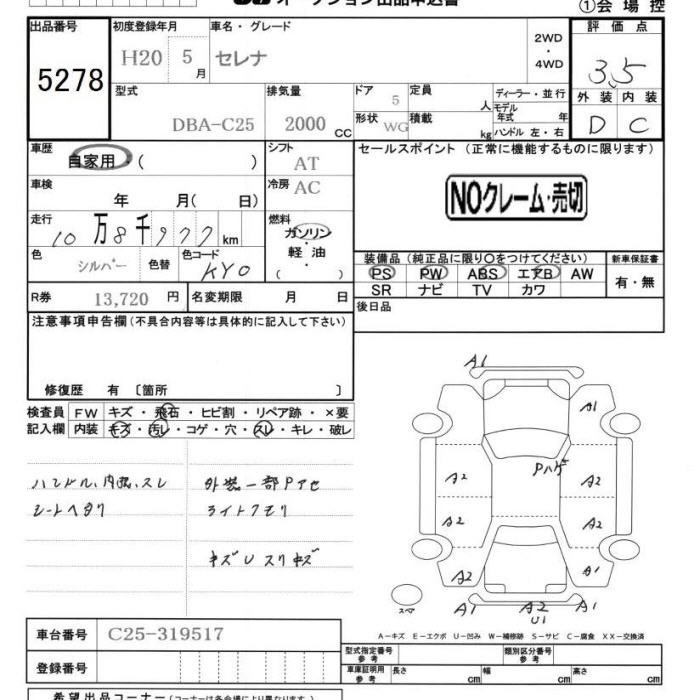 オークション出品申込書
①会場控
出品番号
5278
初度登録年月
H20 5月
車名・グレード
セレナ
2WD・4WD
評価点
3.5
外装 内装
D C
型式
DBA-C25
排気量
2000 CC
ドア
5
形状
WG
定員
人
積載
kg
ディーラー・並行
モデル年式 年
ハンドル 左・右
車歴
自家用・( )
シフト
AT
セールスポイント(正常に機能するものに限ります)
NOクレーム・売切
車検
年 月( 日)
冷房
AC
走行
10万8千977km
燃料
ガソリン・軽油
( )
色
シルバー
色替
色コード
KY0
装備品(純正品に限り○をつけてください)
新車保証書
PS PW ABS エアB AW
SR ナビ TV カワ
有・無
R券 13,720円
名変期限 月 日
後日品
注意事項申告欄(不具合内容等は具体的に記入して下さい)
修復歴 有〔箇所 〕
検査員記入欄
FW キズ・飛石・ヒビ割・リペア跡・×要
内装 キズ・汚レ・コゲ・穴・スレ・キレ・破レ
ハンドル、内張、スレ
シートヘタリ
外装一部Pアセ
ライトクモリ
キズUスリキズ
A1
A1
Pハゲ
A2 A2
A2 A2
A2 A1
A1 A2 A1
U1
スペア
A-キズ E-エクボ U-凹み W-補修跡 S-サビ C-腐食 XX-交換済
車台番号
C25-319517
登録番号
型式指定番号 参考
類別区分番号 参考
車庫証明用 参考
長さ cm 幅 cm 高さ cm
希望出品コーナー(コーナーは各会場により異なります)